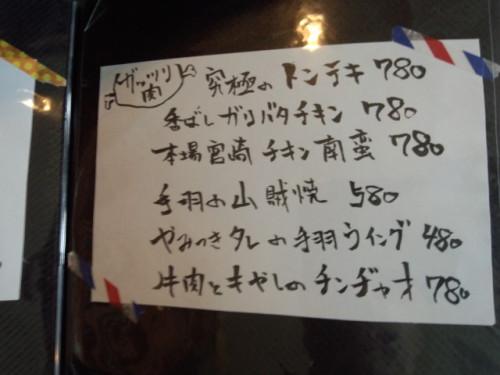 ガッツリ
肉
究極のトンテキ 780
香ばしガリバタチキン 780
本場宮崎チキン南蛮 780
手羽の山賊焼 580
やみつきタレの手羽ウイング 480
牛肉ともやしのチンヂャオ 780